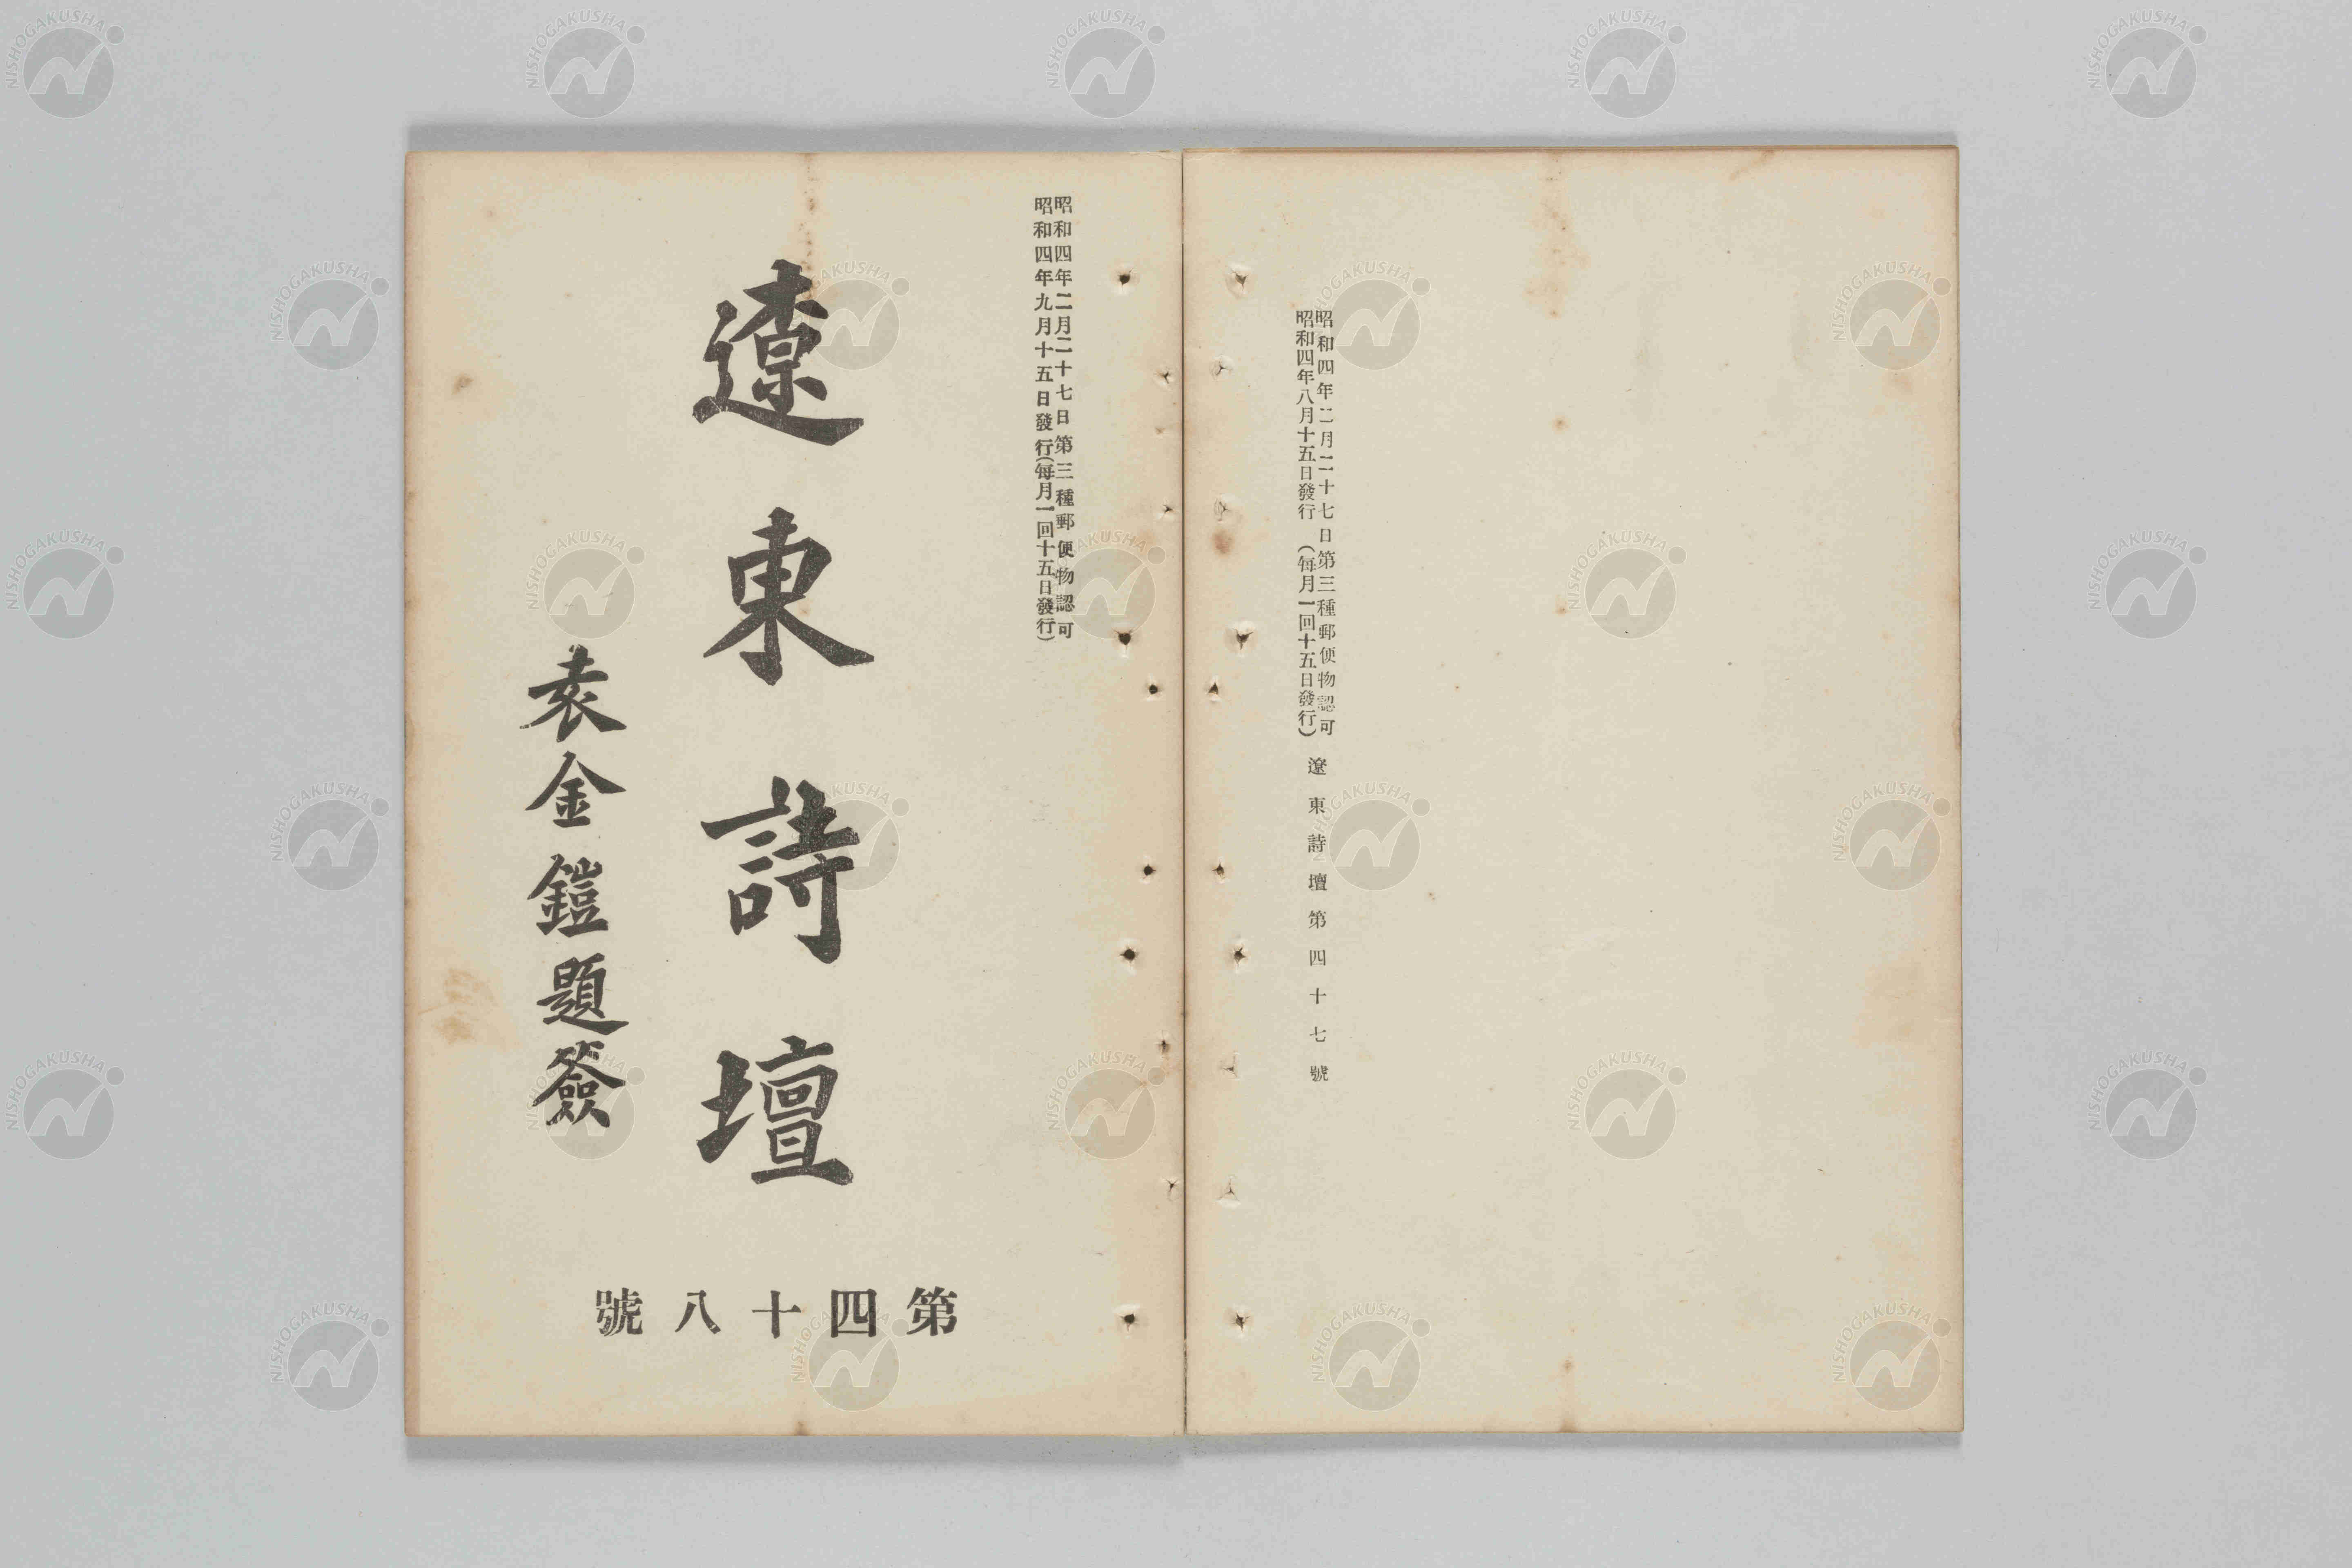 昭和四年二月二十七日第三種郵便物認可
昭和四年八月十五日發行 (每月一回十五日發行)
遼東詩壇第四十七號
昭和四年二月二十七日第三種郵便物認可
昭和四年九月十五日發行(每月一回十五日發行)
遼東詩壇
袁金鎧題簽
第四十八號
NISHOGAKUSHA